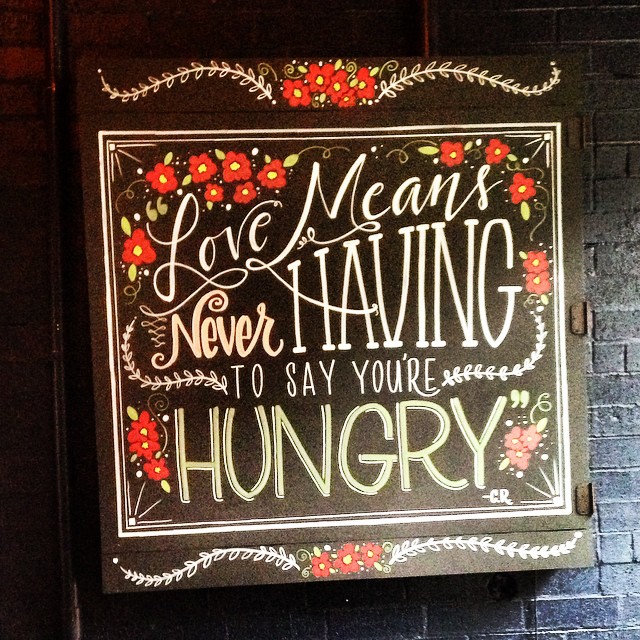 "Love Means
Never HAVING
TO SAY YOU'RE
HUNGRY"
-CR